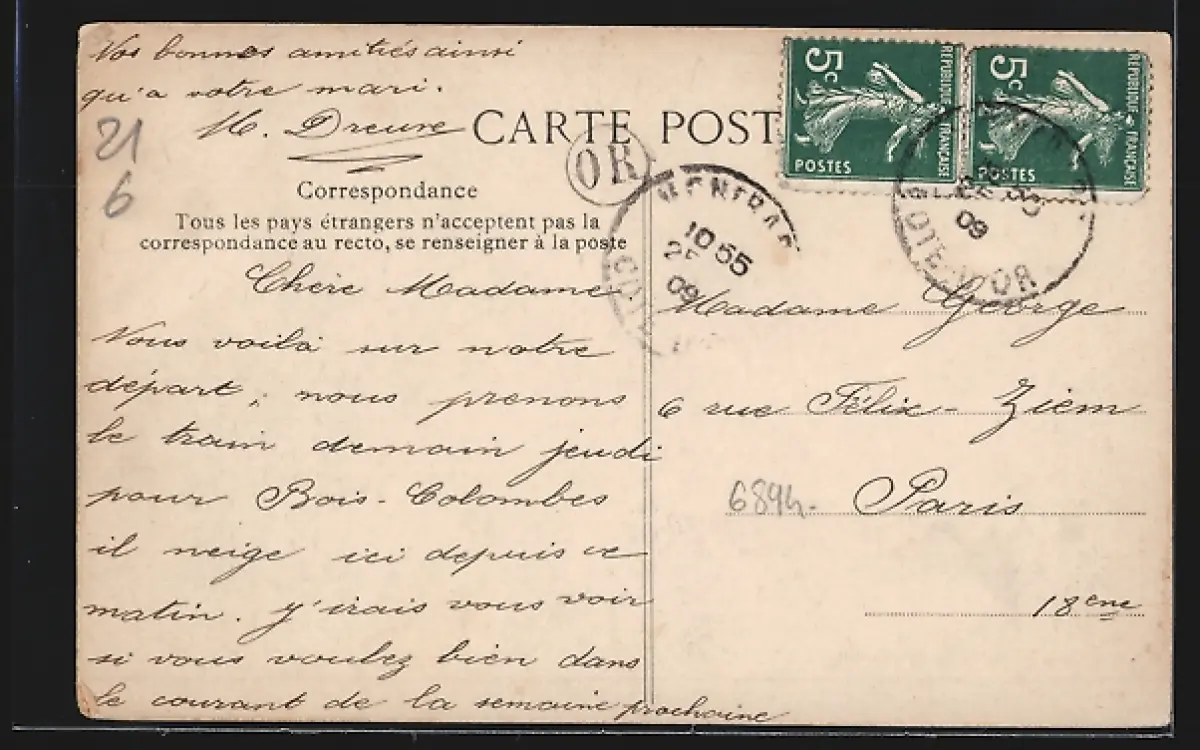 Vos bonnes amitiés ainsi
qu'a votre mari.
M. Dreure
21
6
CARTE POST
OR
5c
REPUBLIQUE FRANÇAISE
POSTES
5c
REPUBLIQUE FRANÇAISE
POSTES
Correspondance
Tous les pays étrangers n'acceptent pas la
correspondance au recto, se renseigner à la poste
10 55
09
09
COTE-D'OR
Chère Madame
Nous voilà sur notre
départ, nous prenons
le train demain jeudi
pour Bois-Colombes
il neige ici depuis ce
matin. j'irais vous voir
si vous voulez bien dans
le courant de la semaine prochaine
Madame George
6 rue Félix-Ziem
6894.
Paris
18eme